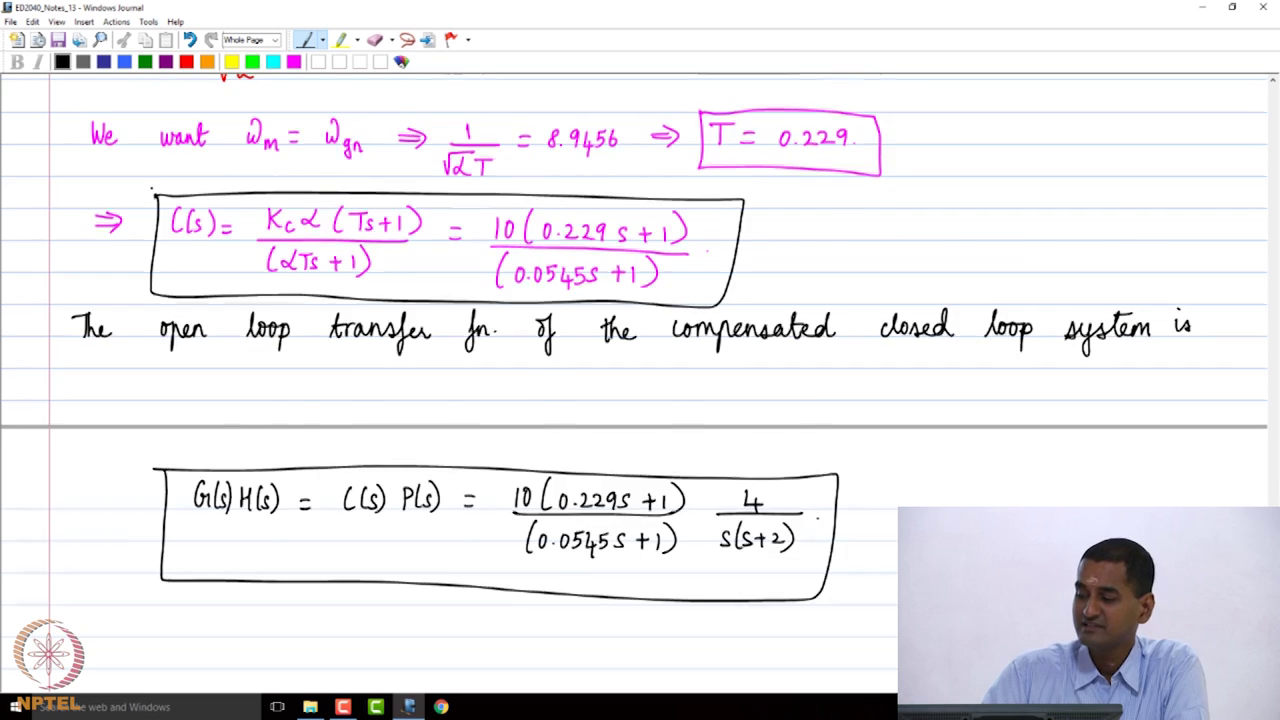 ED2040_Notes_13 - Windows Journal
File Edit View Insert Actions Tools Help
Whole Page
B I
√α
We want ωm = ωgn ⇒ 1/(√α T) = 8.9456 ⇒ T = 0.229.
⇒ C(s) = Kc α (Ts+1)/(αTs+1) = 10(0.229s+1)/(0.0545s+1)
The open loop transfer fn. of the compensated closed loop system is
G(s)H(s) = C(s) P(s) = 10(0.229s+1)/(0.0545s+1) 4/s(s+2)
NPTEL
Search the web and Windows